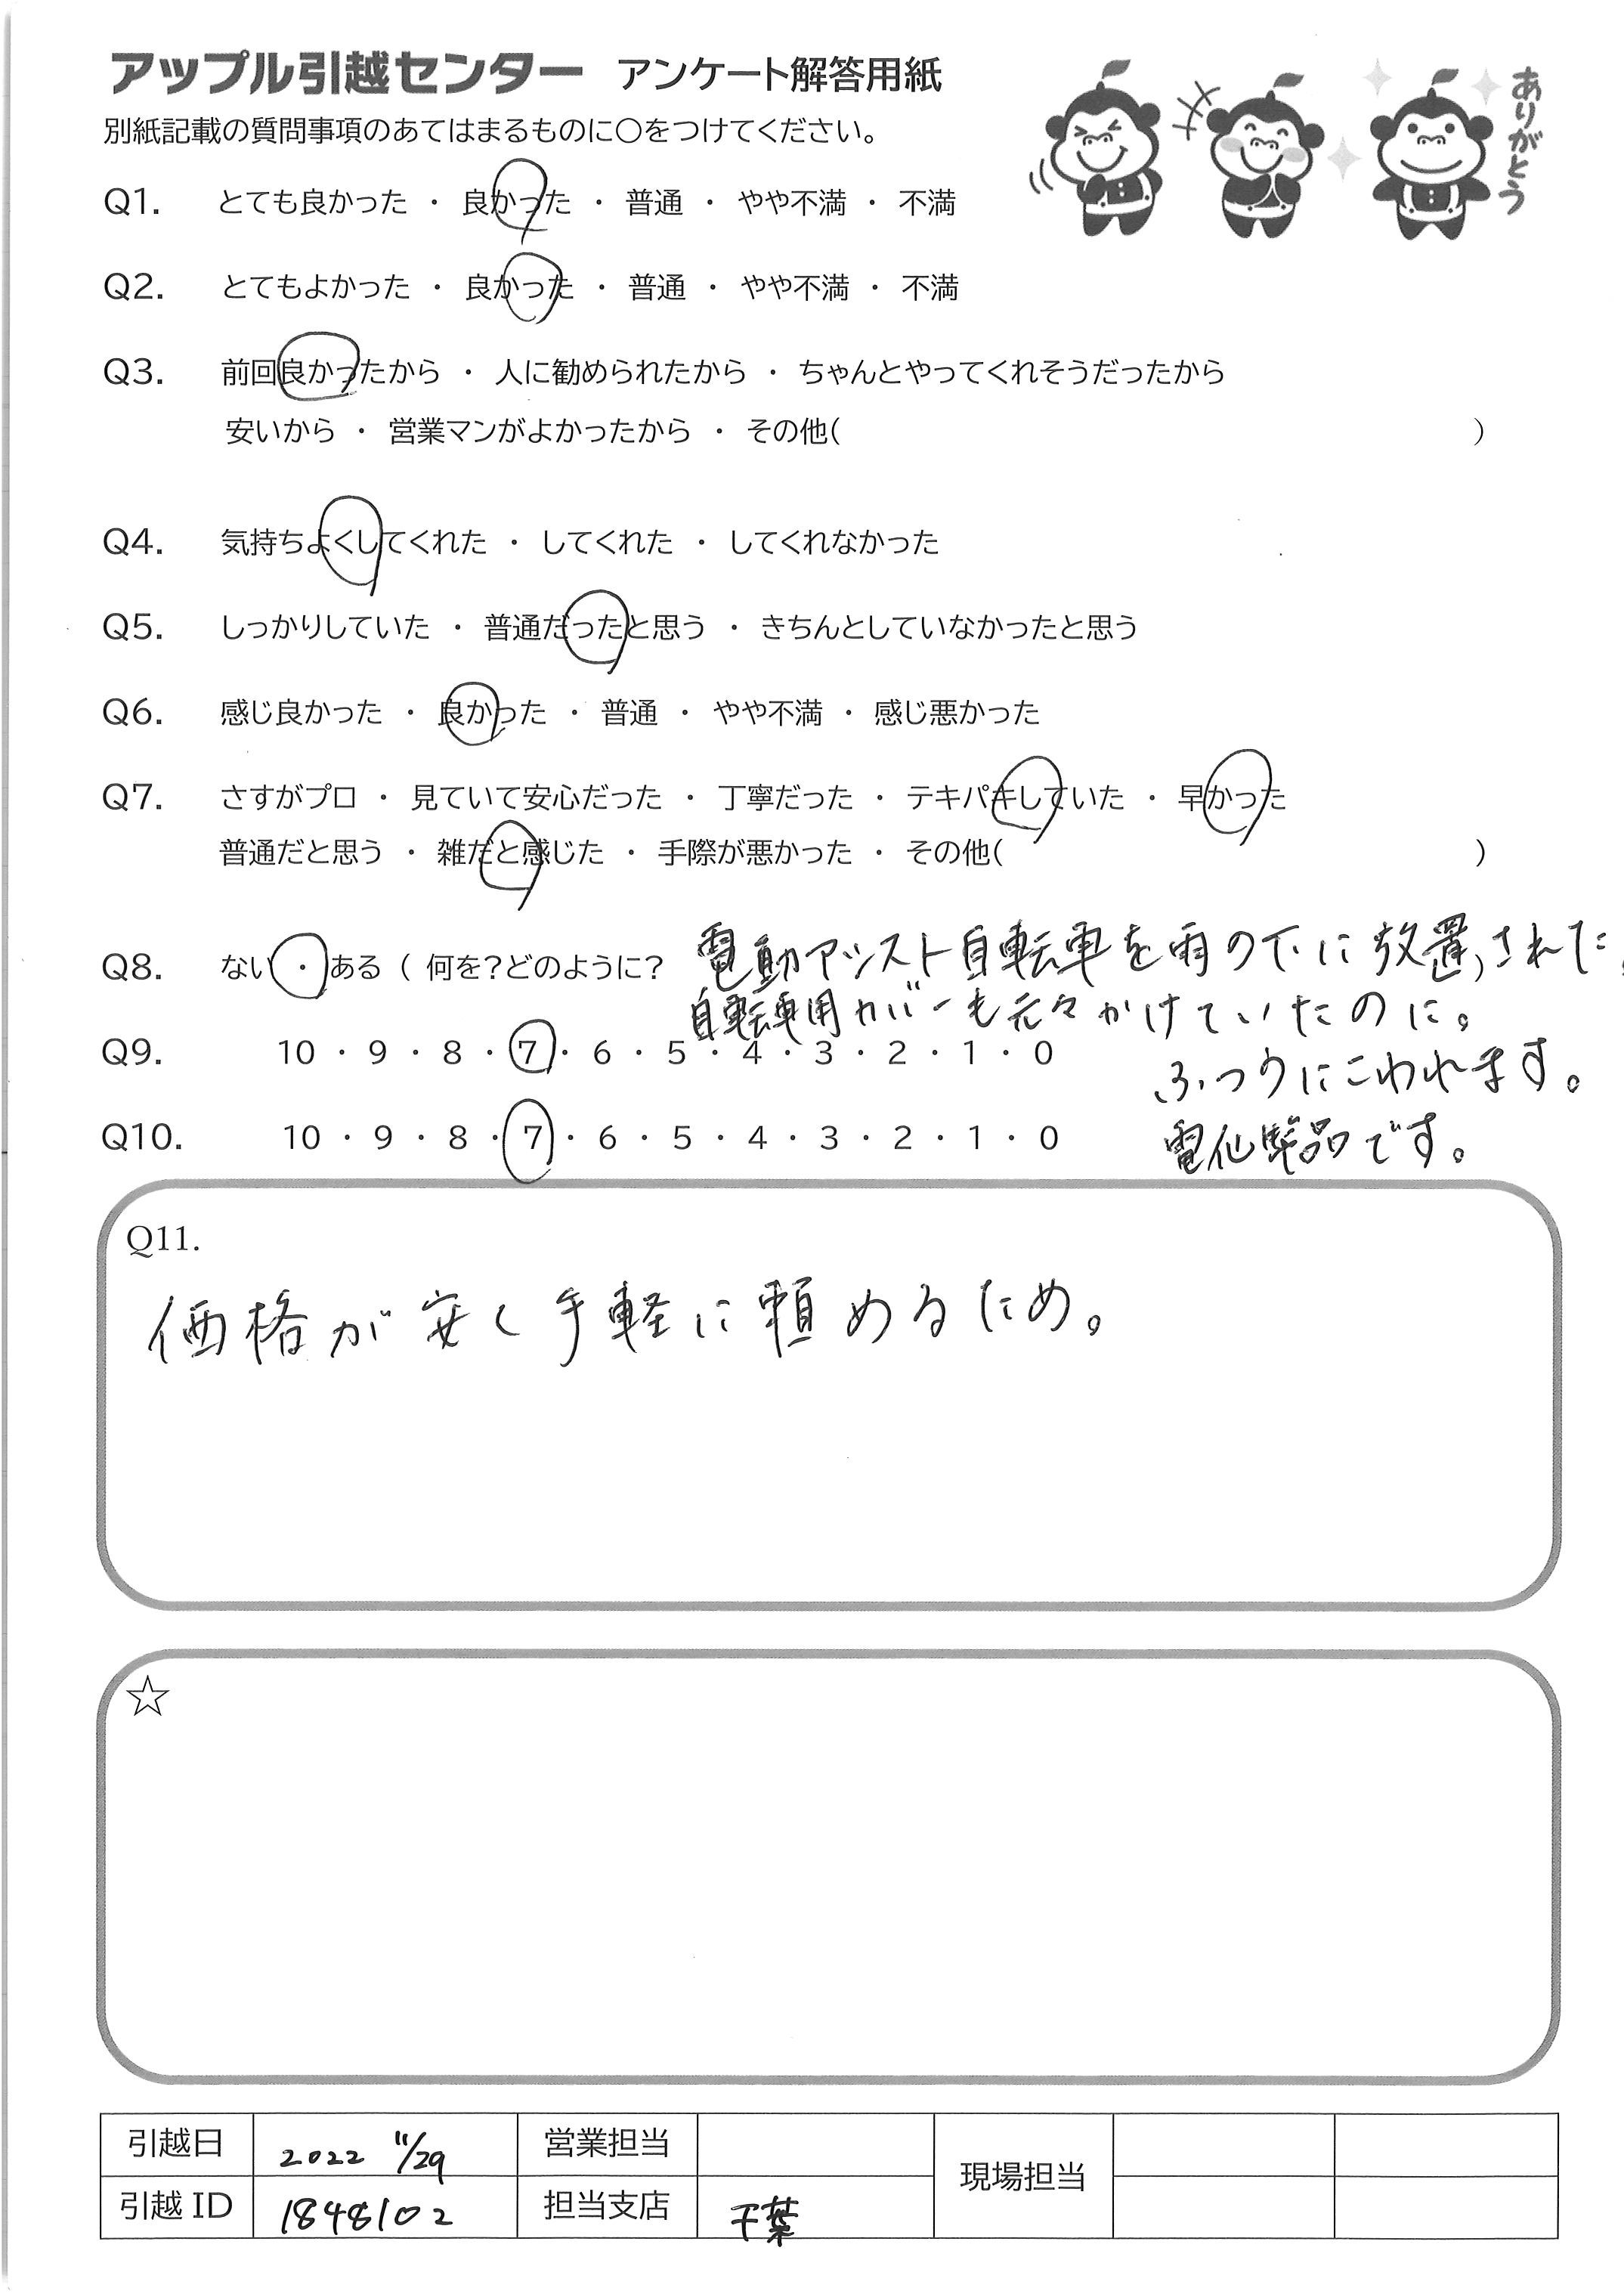 アップル引越センター アンケート解答用紙
ありがとう
別紙記載の質問事項のあてはまるものに○をつけてください。
Q1. とても良かった ・ 良かった ・ 普通 ・ やや不満 ・ 不満
Q2. とてもよかった ・ 良かった ・ 普通 ・ やや不満 ・ 不満
Q3. 前回良かったから ・ 人に勧められたから ・ ちゃんとやってくれそうだったから
安いから ・ 営業マンがよかったから ・ その他( )
Q4. 気持ちよくしてくれた ・ してくれた ・ してくれなかった
Q5. しっかりしていた ・ 普通だったと思う ・ きちんとしていなかったと思う
Q6. 感じ良かった ・ 良かった ・ 普通 ・ やや不満 ・ 感じ悪かった
Q7. さすがプロ ・ 見ていて安心だった ・ 丁寧だった ・ テキパキしていた ・ 早かった
普通だと思う ・ 雑だと感じた ・ 手際が悪かった ・ その他( )
Q8. ない ・ ある ( 何を?どのように? 電動アシスト自転車を雨の下に放置された。)
自転車用カバーも元々かけていたのに。
Q9. 10 ・ 9 ・ 8 ・ 7 ・ 6 ・ 5 ・ 4 ・ 3 ・ 2 ・ 1 ・ 0
ふつうにこわれます。
Q10. 10 ・ 9 ・ 8 ・ 7 ・ 6 ・ 5 ・ 4 ・ 3 ・ 2 ・ 1 ・ 0
電化製品です。
Q11.
価格が安く手軽に頼めるため。
☆
引越日 2022 11/29 営業担当
現場担当
引越ID 1848102 担当支店 千葉